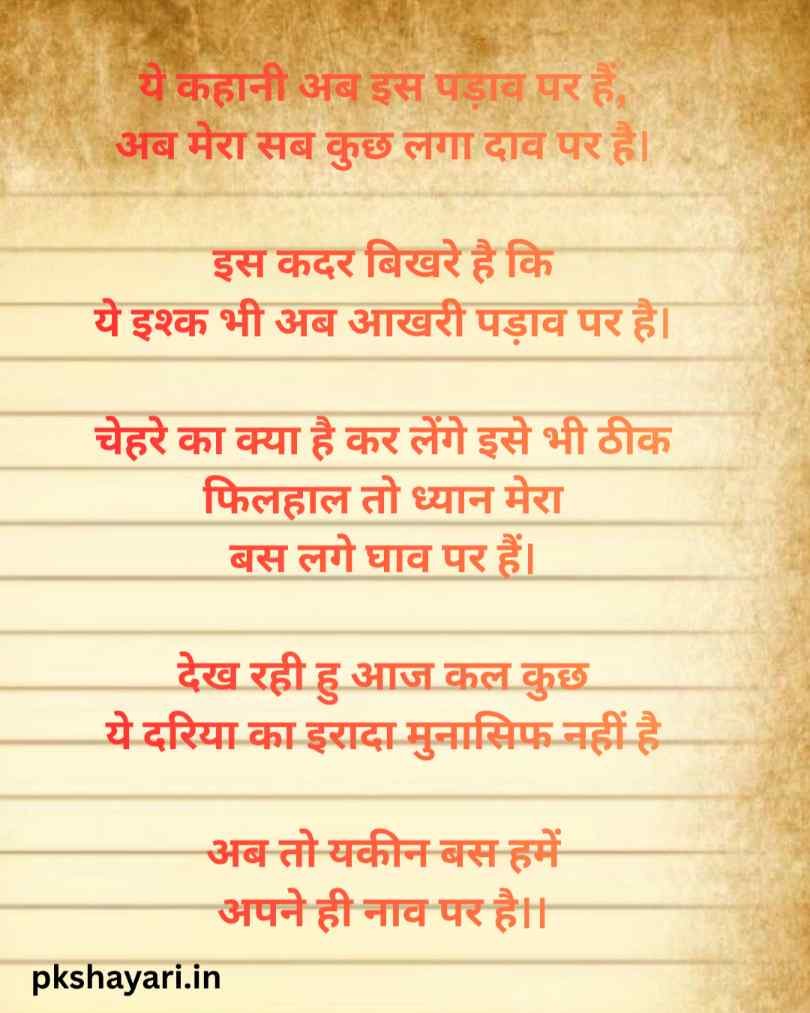 ये कहानी अब इस पड़ाव पर हैं,
अब मेरा सब कुछ लगा दाव पर है।
इस कदर बिखरे है कि
ये इश्क भी अब आखरी पड़ाव पर है।
चेहरे का क्या है कर लेंगे इसे भी ठीक
फिलहाल तो ध्यान मेरा
बस लगे घाव पर हैं।
देख रही हु आज कल कुछ
ये दरिया का इरादा मुनासिफ नहीं है
अब तो यकीन बस हमें
अपने ही नाव पर है।।
pkshayari.in